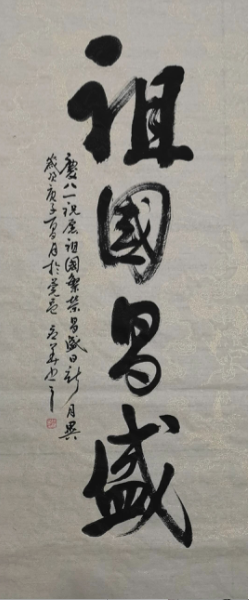 祖國昌盛
慶八一祝愿祖國繁榮昌盛日新月異
歲次庚子百月於